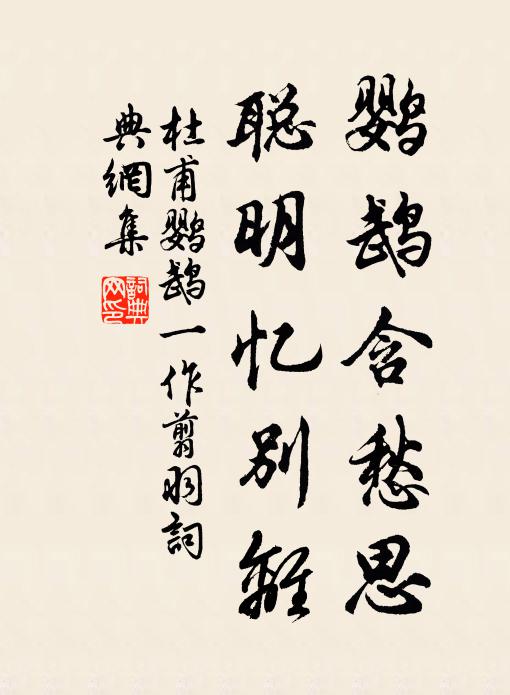 鹦鹉含愁思
聪明忆别離
杜甫鹦鹉一作剪羽詞
典網集
詞典
网印